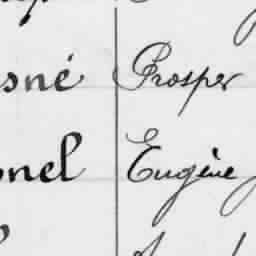 sné Prosper
onel Eugène